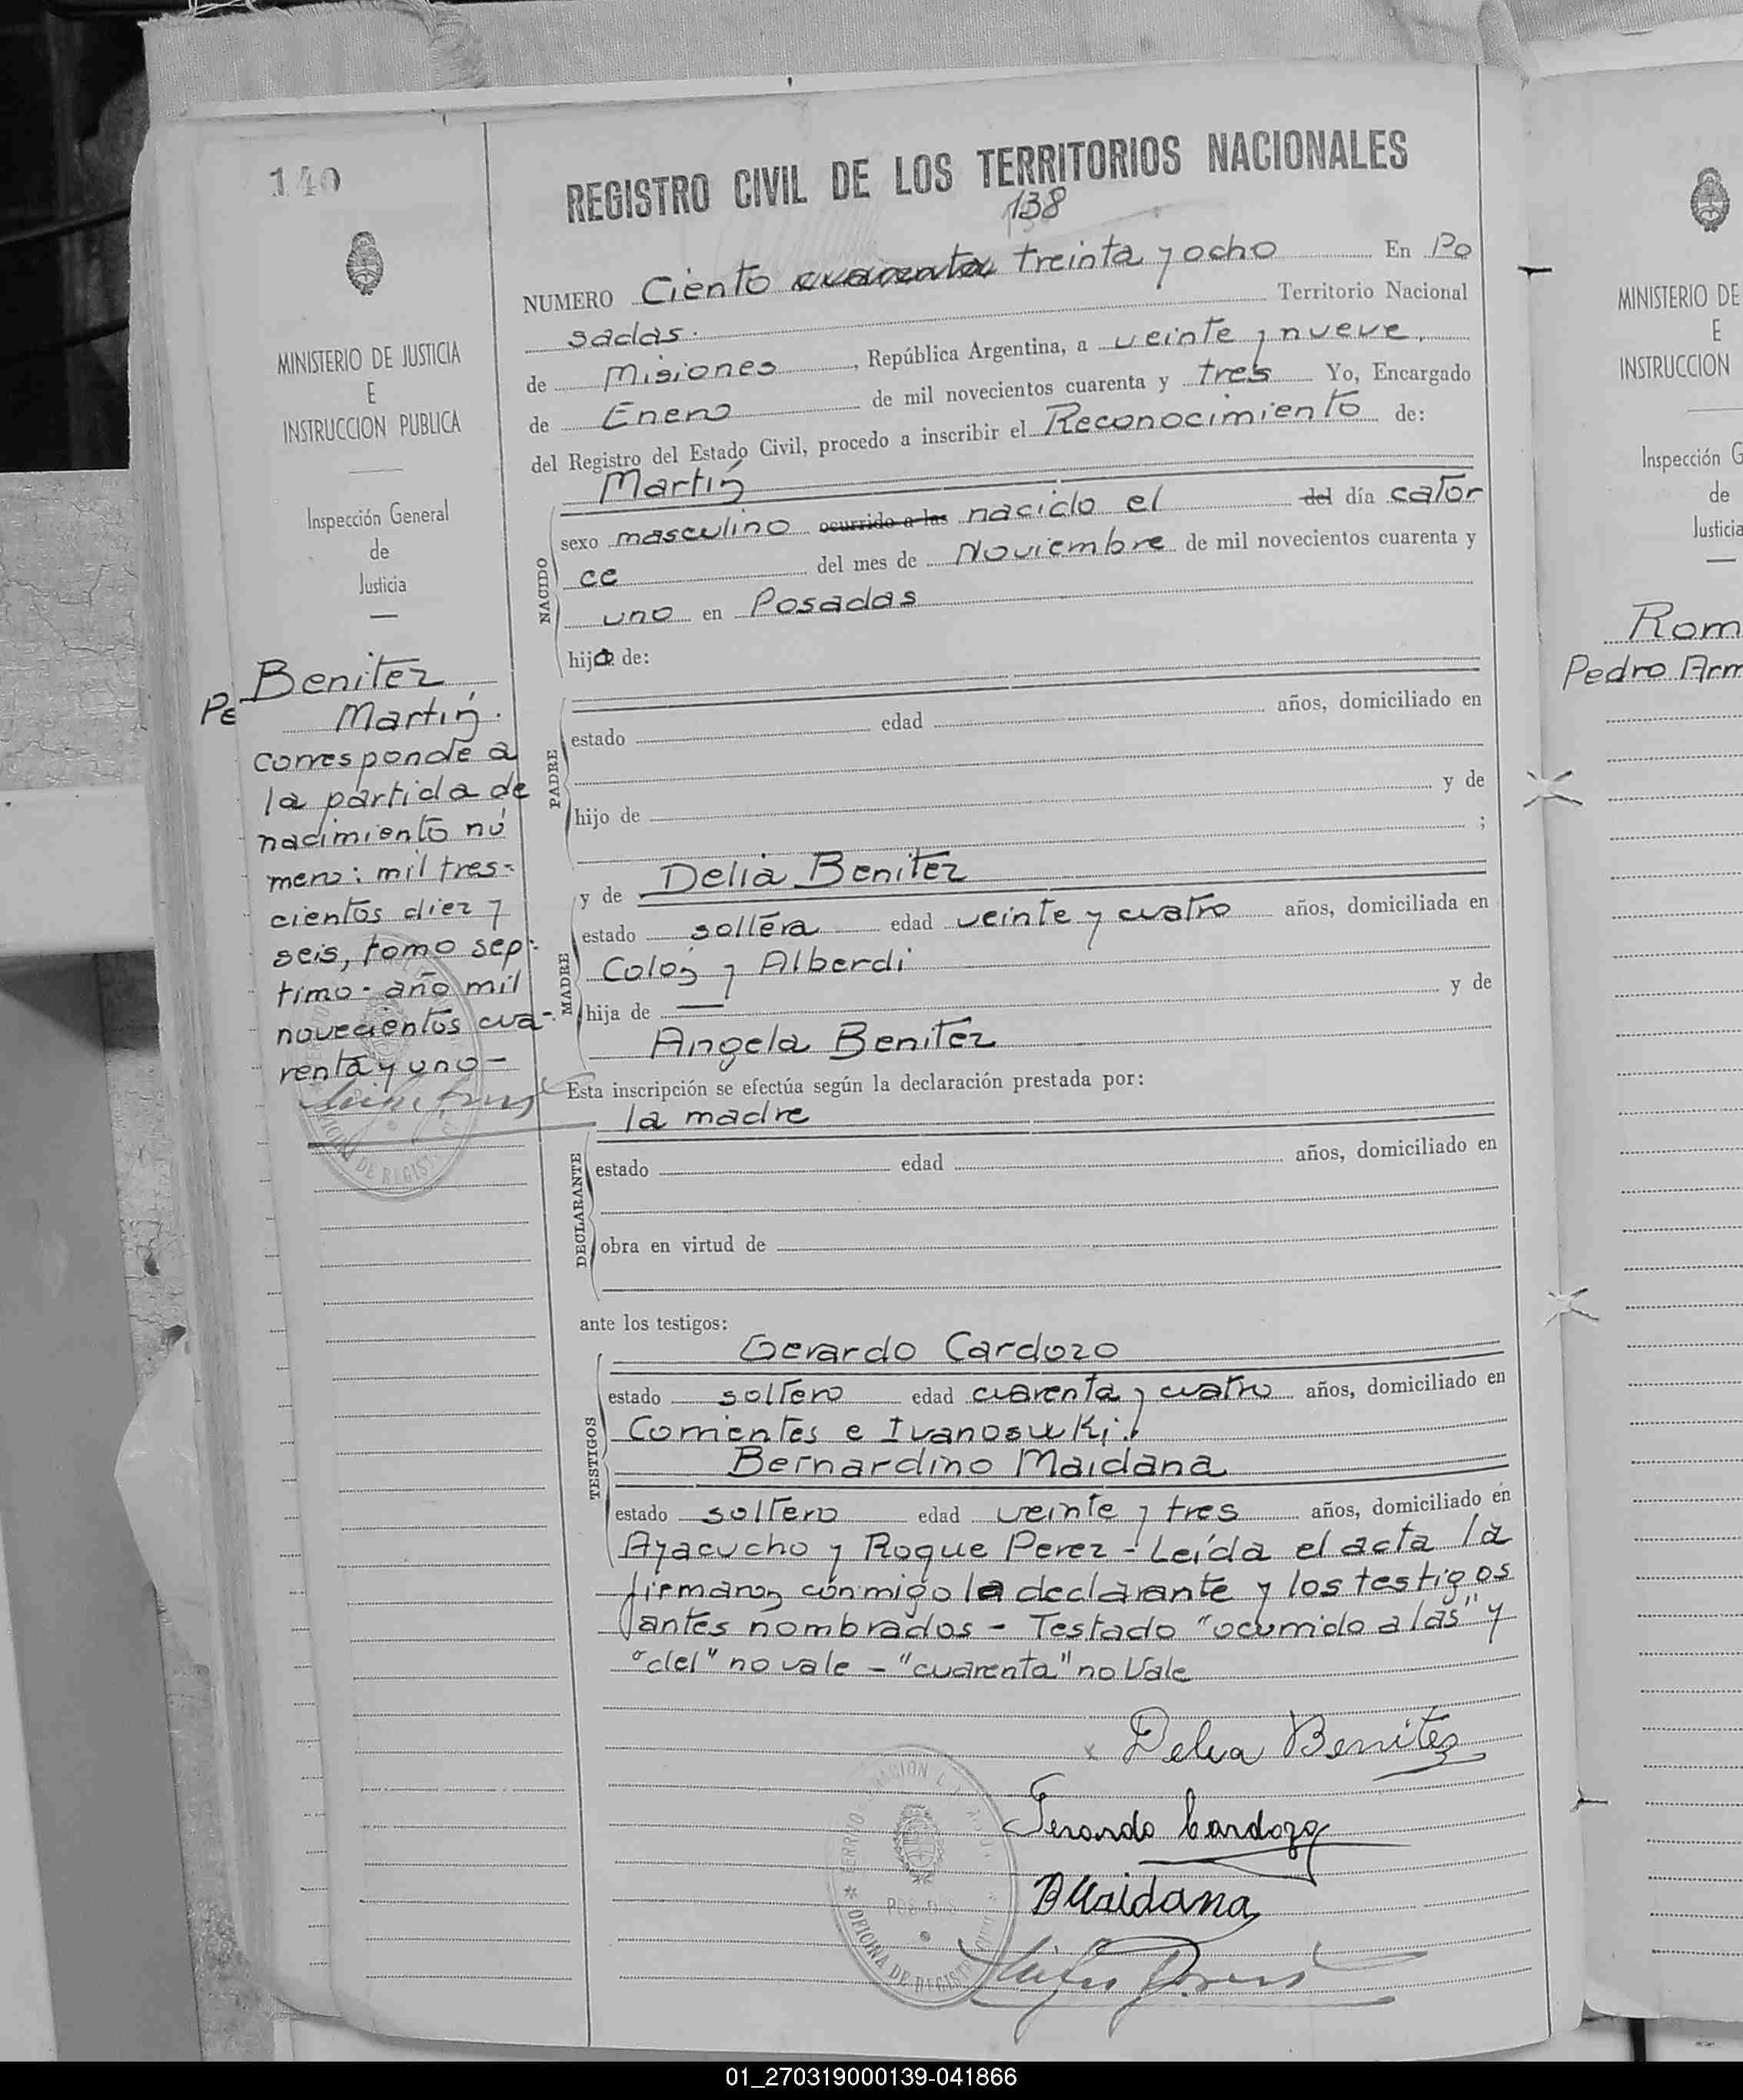 140
REGISTRO CIVIL DE LOS TERRITORIOS NACIONALES
138
NUMERO Ciento cuarenta treinta y ocho En Po
sadas. Territorio Nacional
de Misiones, República Argentina, a veinte y nueve,
de Enero de mil novecientos cuarenta y tres Yo, Encargado
del Registro del Estado Civil, procedo a inscribir el Reconocimiento de:
Martín
sexo masculino ocurrido a las nacido el del día cator
ce del mes de Noviembre de mil novecientos cuarenta y
uno en Posadas
hijo de:
NACIDO
estado edad años, domiciliado en
hijo de y de
;
PADRE
y de Delia Benitez
estado soltera edad veinte y cuatro años, domiciliada en
Colón y Alberdi
hija de — y de
Angela Benitez
MADRE
Esta inscripción se efectúa según la declaración prestada por:
la madre
estado edad años, domiciliado en
obra en virtud de
DECLARANTE
ante los testigos:
Gerardo Cardozo
estado soltero edad cuarenta y cuatro años, domiciliado en
Corrientes e Ivanosuki.
Bernardino Maidana
estado soltero edad veinte y tres años, domiciliado en
TESTIGOS
Ayacucho y Roque Perez - Leída el acta la
firmaron conmigo la declarante y los testigos
antes nombrados - Testado "ocurrido a las" y
"del" no vale - "cuarenta" no Vale
Delia Benitez
Gerardo Cardozo
BMaidana
POSADAS
OFICINA DE REGISTRO CIVIL
MINISTERIO DE JUSTICIA
E
INSTRUCCION PUBLICA
Inspección General
de
Justicia
Benitez
Martín.
corresponde a
la partida de
nacimiento nú
mero: mil tres-
cientos diez y
seis, tomo sep-
timo - año mil
novecientos cua-
renta y uno -
Pe
MINISTERIO DE
E
INSTRUCCION
Inspección G
de
Justicia
Rom
Pedro Arm
01_270319000139-041866